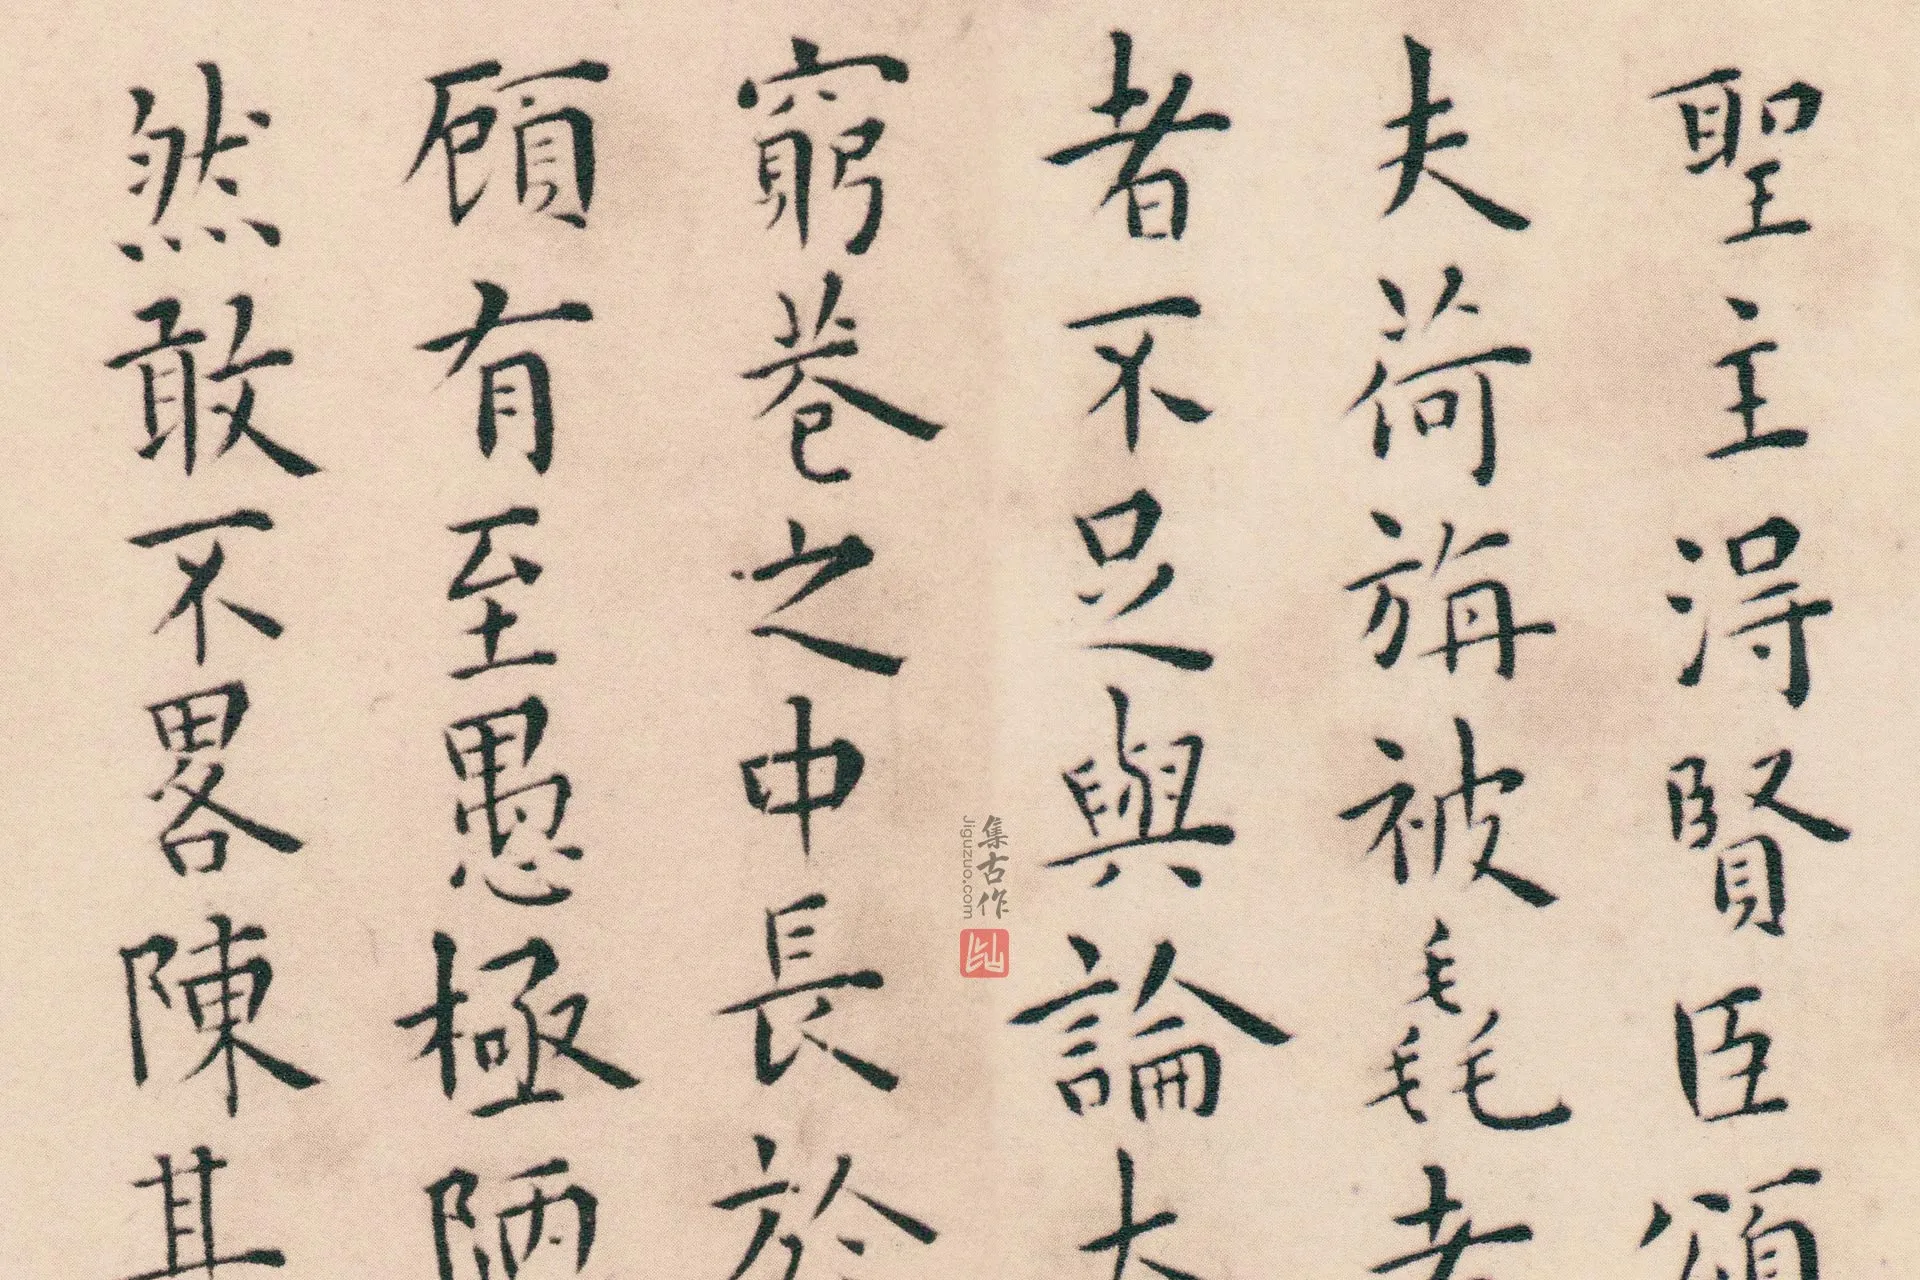 聖主得賢臣頌
夫荷旃被毳者
者不足與論
窮巷之中長於
顧有至愚極陋
然敢不畧陳其
集古作
Jiguzuo.com